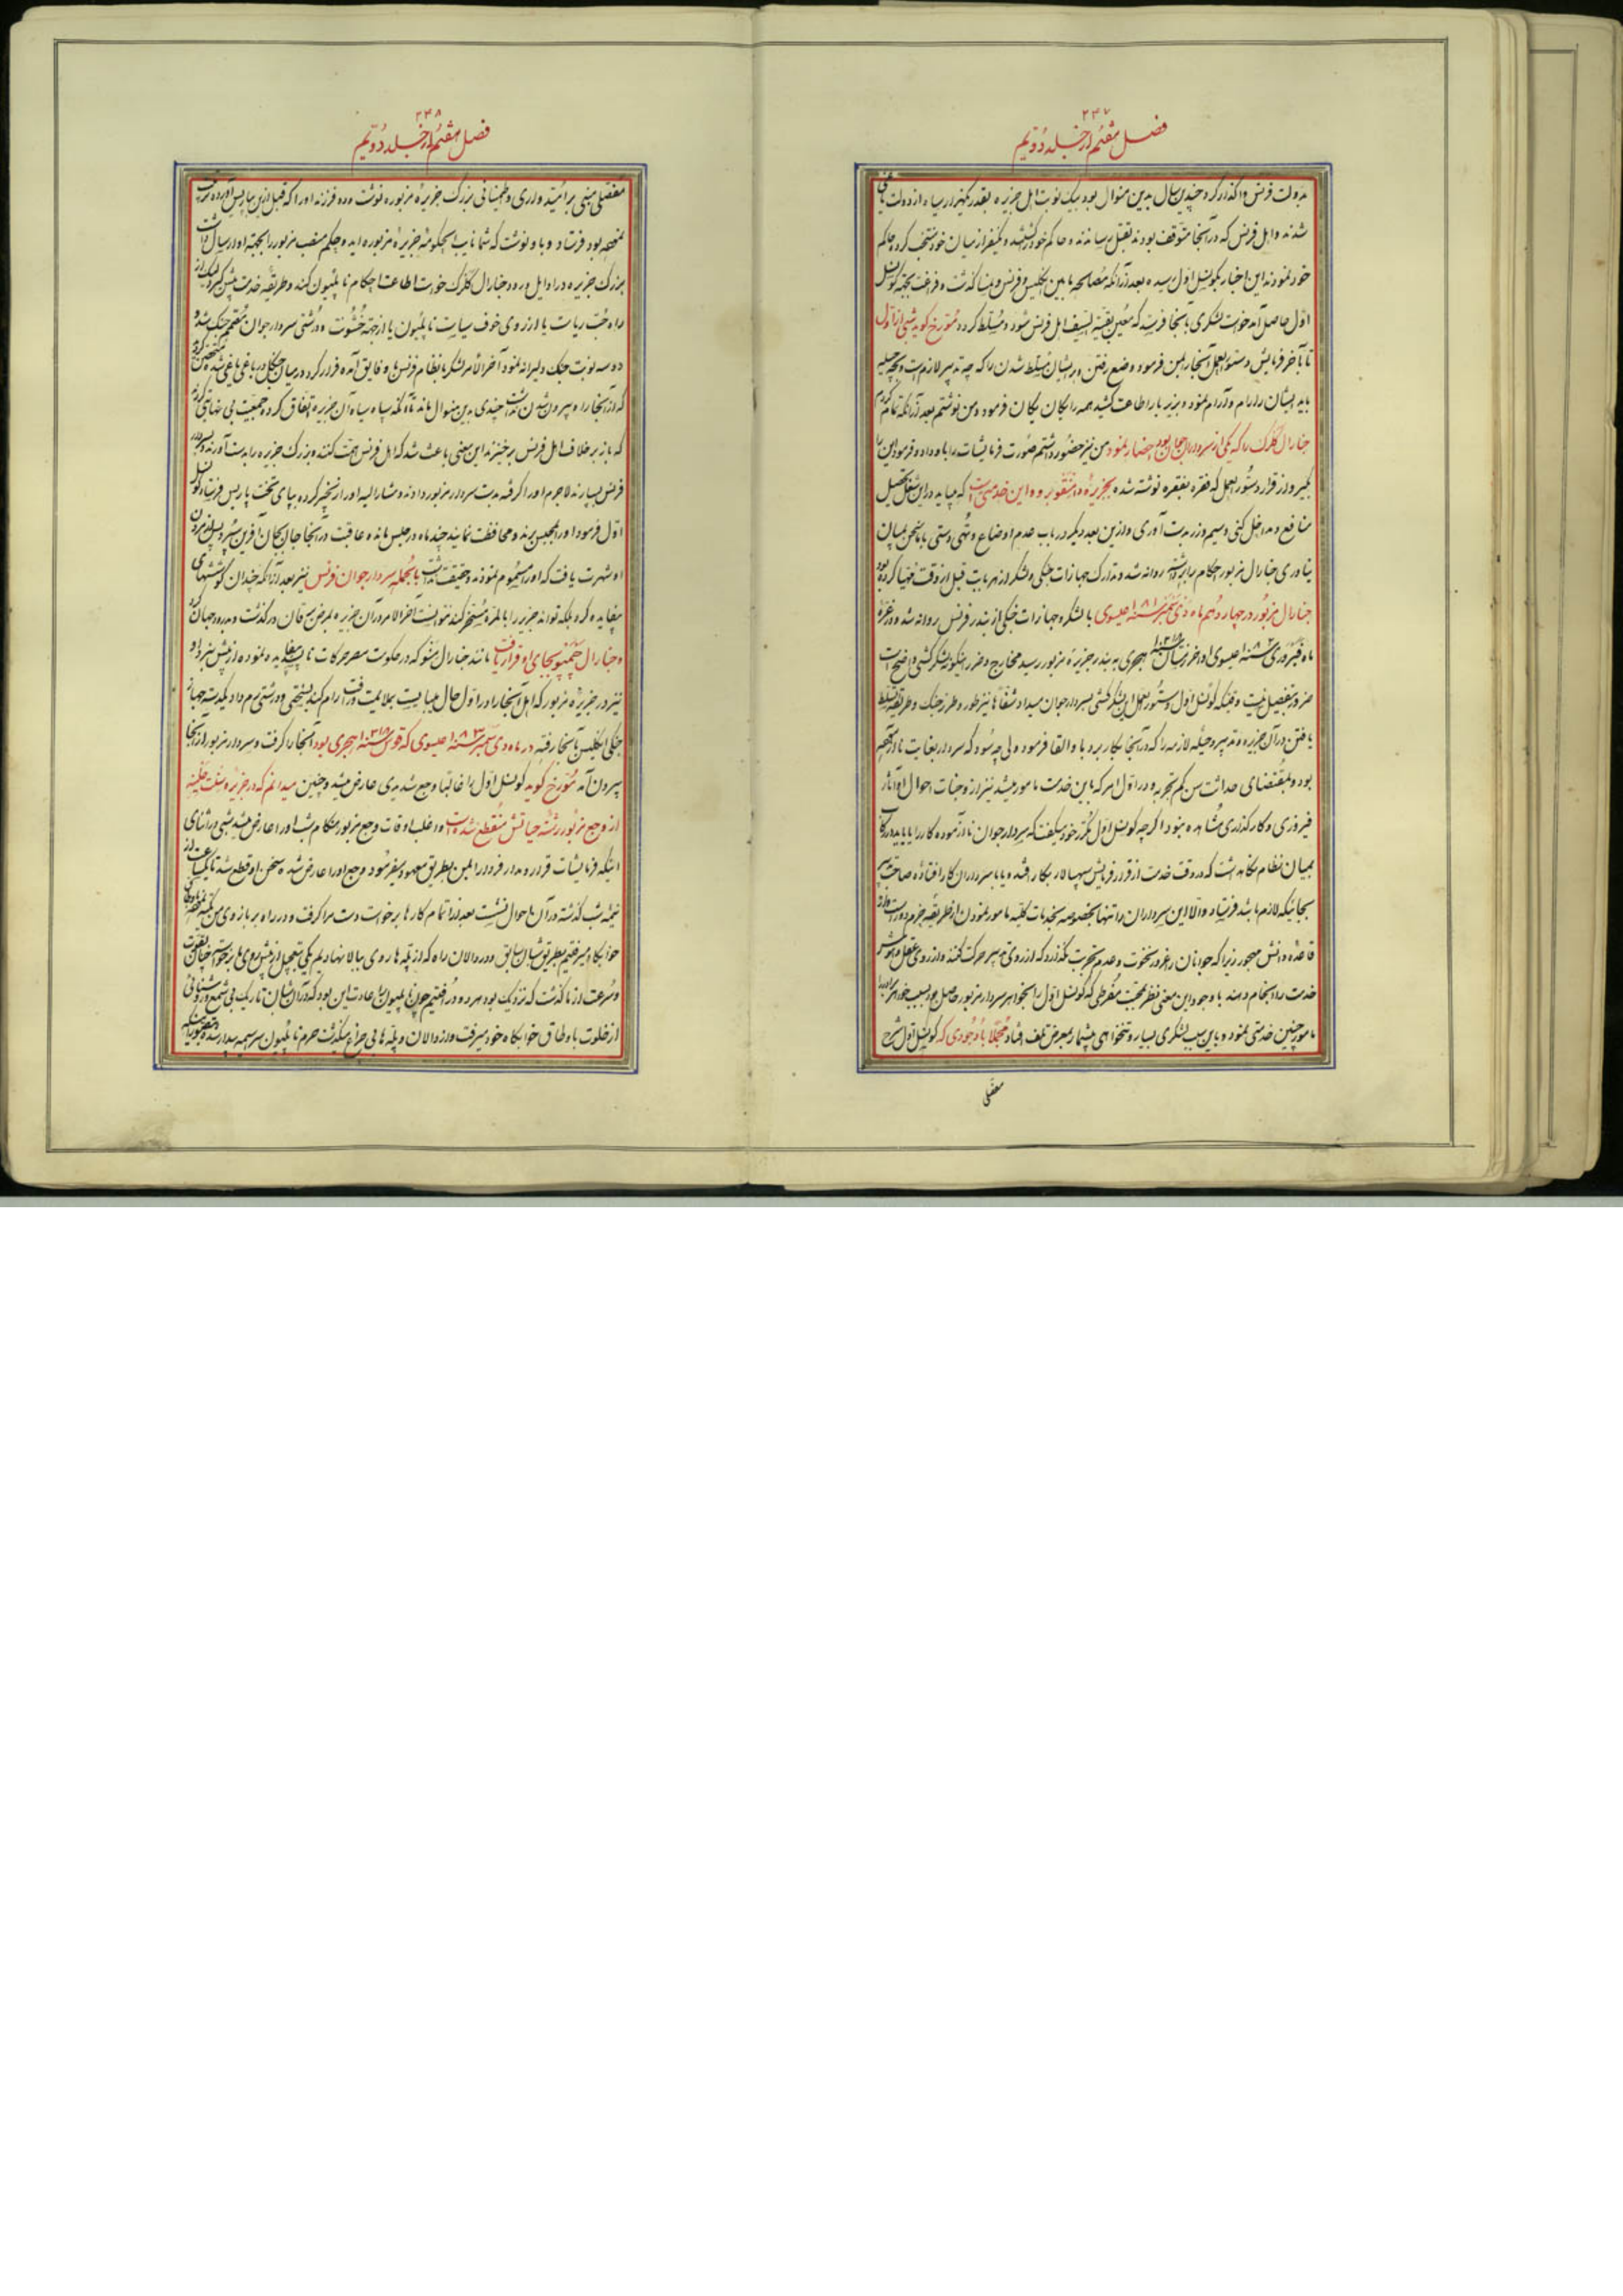 ۲۴۷
فصل هفتم از جلد دویم
بدولت فرنس واگذار کرد چندین سال بدین منوال بود بیک نوبت اهل جزیره بقدر یکهزار سیاه از دولت یاغی
شدند و اهل فرنس که در آنجا متوقف بودند بقتل رسانیدند و حاکم خود را کشتند و یکنفر از میان خود منتخب کرده حاکم
خود نمودند این اخبار بکونسل اول رسیده بعد از آنکه مصالحه مابین انگلیس و فرنس و نمسا گذشت و فراغت بجهة کونسل
اول حاصل آمد خواست لشکری بآنجا فرستد که معین بقیة السیف اهل فرنس شود و مسلط کردد مورخ کوید شبی از اول
تا بآخر فرمایش و دستورالعمل آنجا را بمن فرمود و وضع رفتن و برایشان مسلط شدن را که چه تدبیر لازمست و بچه حیله
باید ایشان را رام و آرام نمود و بزیر بار اطاعت کشید همه را یکان یکان فرمود و من نوشتم بعد از آنکه تمام کردم
جنارال کلرک را که یکی از سرداران جوان بود احضار نمود من نیز حضور داشتم صورت فرمایشات را باو داد و فرمود این را
بگیر و از قرار دستورالعمل که فقره بفقره نوشته شده بجزیرهٔ برو و این خدمتی است که میباید در این شغل تحصیل
منافع و مداخل کنی و سیم و زر بدست آوری و ازین بعد دیگر در باب عدم اوضاع و تهی دستی با ما سخن بمیان
نیاوری جنارال مزبور احکام را برداشته روانه شد و تدارک جهازات جنگی و لشکر از هر بابت قبل از وقت مهیا کرده بود
جنارال مزبور در چهاردهم ماه دی سنه ۱۸۰۱ عیسوی با لشکر و جهازات جنگی از بندر فرنس روانه شد و در غرهٔ
ماه فبروری سنه ۱۸۰۲ عیسوی اواخر رمضان هجری به بندر جزیرهٔ مزبور رسید مخارج و ضرر اینکونه لشکر کشی واضح است
ضرور بتفصیل نیست و قتیکه کونسل اول دستورالعمل این لشکر کشی بسردار جوان میداد شفاها نیز طور و طرز جنک و طریقه تسلط
یافتن در آن جزیره و تدبیر و حیله لازمه را که در آنجا بکار برد باو القا فرمود ولی چه سود که سردار بغایت
بود و بمقتضای حداثت سن کم تجربه و در اول امر که باین خدمت مامور میشد نیز از وجنات احوال او آثار
فیروزی و کارگذاری مشاهده نبود اگرچه کونسل اول مکرر خود میگفت که سردار جوان ناآزموده کار را باید در رکاب
بمیان نظام نگاهداشت که در وقت خدمت از قرار فرمایش سپهسالار بکار افتد و یا با سرداران کار افتاده صاحب تدبیر
بجائیکه لازم باشد فرستاد والا این سرداران را تنها بخصوصه بخدمات کلیه مامور نمودن از طریقه حزم دور است و از
قاعده دانش مهجور زیرا که جوانان را غرور و نخوت و عدم تجربت نگذارد که از روی تدبیر حرکت کنند و از روی عقل و هوش
خدمت را انجام دهند با وجود این معنی نظر بمحبت مفرطی که کونسل اول را بخواهر سردار مزبور حاصل بود بسبب خواهر او را
مامور چنین خدمتی نمود و باین سبب لشکری بسیار و تنخواهی بیشمار بمعرض تلف افتاد مجملا با وجودی که کونسل اول شرح
مفصلی
۲۴۸
فصل هفتم از جلد دویم
مفصلی مبنی بر امیدواری و اطمینانی بزرک جزیرهٔ مزبوره نوشت و دو فرزند او را که قبل ازین بپاریس آورده تربیت
فرستاد و باو نوشت که شما نایب الحکومهٔ جزیرهٔ مزبوره اید و حکم منصب مزبور را بجهة او ارسال داشت
بزرک جزیره در اوایل ورود جنارال کلرک خواست اطاعت احکام ناپلیون کند و طریقه خدمت پیش گیرد لیک از
راه حب ریاست یا از روی خوف سیاست ناپلیون یا از جهة خشونت و درشتی سردار جوان مصمم جنک شد و
دو سه نوبت جنک دلیرانه نمود آخرالامر لشکر بانظام فرنس باو فایق آمده فرار کرد و در میان جنگل در باغی یاغی شده
که از آنجا راه بیرون شدن نداشت چندی بدین منوال ماند تا آنکه سپاه سیاه آن جزیره اتفاق کرده جمعیت
که باز برخلاف اهل فرنس برخیزند این معنی باعث شد که اهل فرنس همت کنند و بزرک جزیره را بدست آورند و بسردار
فرنس بسپارند لاجرم او را گرفته بدست سردار مزبور دادند و مشارالیه او را زنجیر کرده بپای تخت پاریس فرستاد کونسل
اول فرمود او را بمحبس برند و محافظت نمایند چند ماه در حبس مانده عاقبت در آنجا جان بجان آفرین سپرد پس از مردن
او شهرت یافت که او را مسموم نمودند و حقیقت نداشت بالجمله سردار جوان فرنس نیز بعد از آنکه چندان کوششهای
بیفایده کرد بلکه تواند جزیره را بالمره مسخر کند نتوانست آخرالامر در آن جزیره بمرض یرقان در گذشت و بدرود جهان کرد
و جنارال بجای او قرار یافت مانند جنارال منو که در حکومت مصر حرکات ناپسندیده نموده از پیش نبرد او
نیز در جزیرهٔ مزبور که اهل آنجا را در اول حال میبایست بملایمت و رفق رام کند بسختی و درشتی رم داد یکدسته جهاز
جنگی انگلیس بآنجا رفته در ماه سنه ۱۸۰۳ عیسوی که سنه ۱۲۱۸ هجری بود آنجا را گرفت و سردار مزبور از آنجا
بیرون آمد مورخ کوید کونسل اول را غالبا وجع شدیدی عارض میشد و چنین میدانم که در جزیره سنت هلینه
از وجع مزبور رشتهٔ حیاتش منقطع شده است و اغلب اوقات وجع مزبور هنگام شب او را عارض میشد شبی در اثنای
اینکه فرمایشات قرار و مدار فردا را بمن بطریق معهود میفرمود وجع او را عارض شد سخن او قطع شد تا یکساعت از
نیمه شب گذشته در آن احوال نشست بعد از اتمام کارها برخواست دست مرا گرفت و در راه بر بازوی من تکیه
خوابگاه میرفتیم بطریق شبهای سابق و در دالان راه که از پله ها روی ببالا نهادیم یکی بتعجیل از پیش روی ما برخواست چنان بقوت
و سرعت از ما گذشت که نزدیک بود هر دو در افتیم چون ناپلیون را عادت این بود که در آن شبان تاریک بی شمع و روشنائی
از خلوت باوطاق خوابگاه خود میرفت و از دالان و پله ها بی چراغ میگذشت حرم ناپلیون سراسیمه بیدار شده